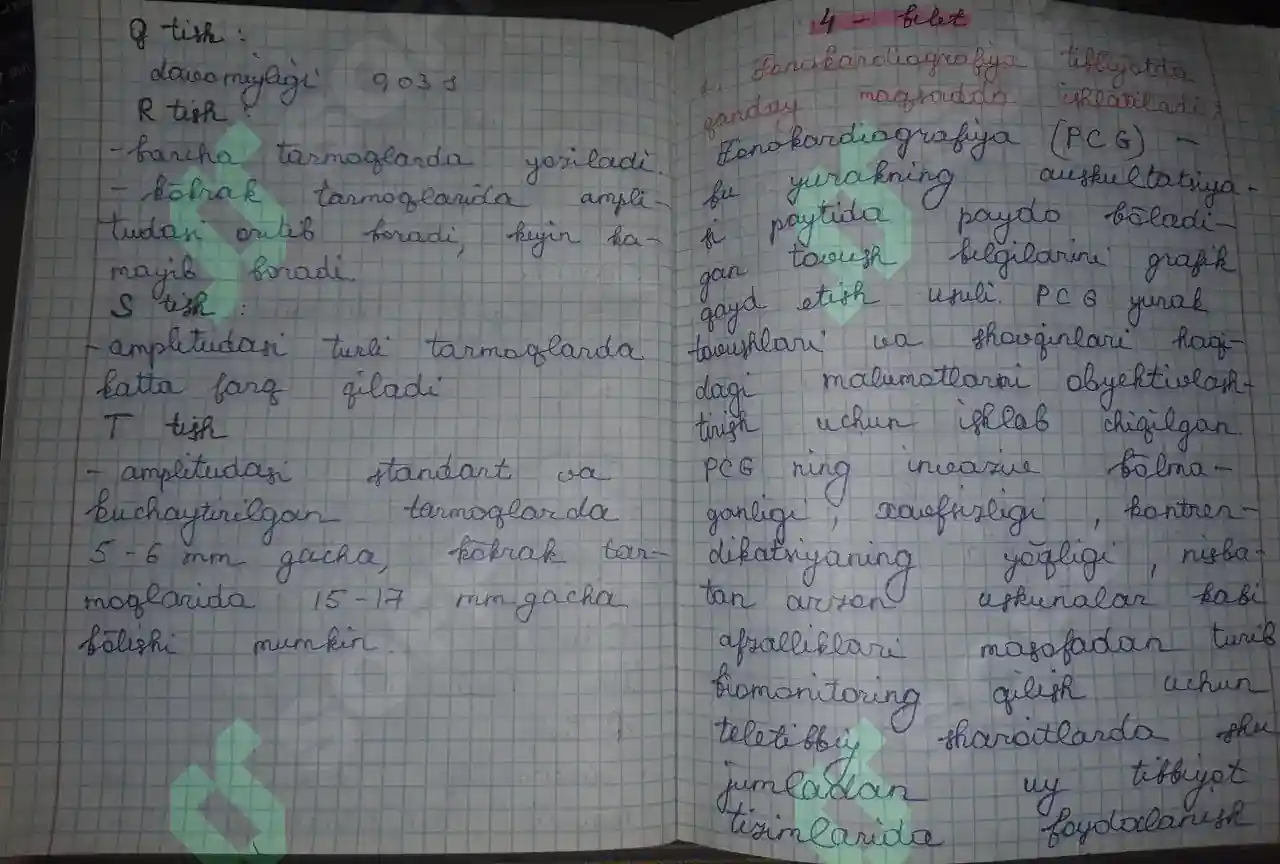 Q tish :
davomiyligi 0,03 s
R tish :
- barcha tarmoqlarda yoziladi.
- kōkrak tarmoqlarida ampli-
tudasi ortib boradi, keyin ka-
mayib boradi.
S tish :
- amplitudasi turli tarmoqlarda
katta farq qiladi
T tish
- amplitudasi standart va
kuchaytirilgan tarmoqlarda
5-6 mm gacha, kōkrak tar-
moqlarida 15-17 mm gacha
bōlishi mumkin.
4 - bilet
1. Fonokardiografiya tibbiyotda
qanday maqsadda ishlatiladi?
Fonokardiografiya (PCG) -
bu yurakning auskultatsiya-
si paytida paydo bōladi-
gan tovush belgilarini grafik
qayd etish usuli. PCG yurak
tovushlari va shovqinlari haqi-
dagi malumotlarni obyektivlash-
tirish uchun ishlab chiqilgan.
PCG ning invazive bōlma-
ganligi, xavfsizligi, kontren-
dikatsiyaning yōqligi, nisba-
tan arzon uskunalar kabi
afzalliklari masofadan turib
biomonitoring qilish uchun
teletibbiy sharoitlarda shu
jumladan uy tibbiyot
tizimlarida foydalanish